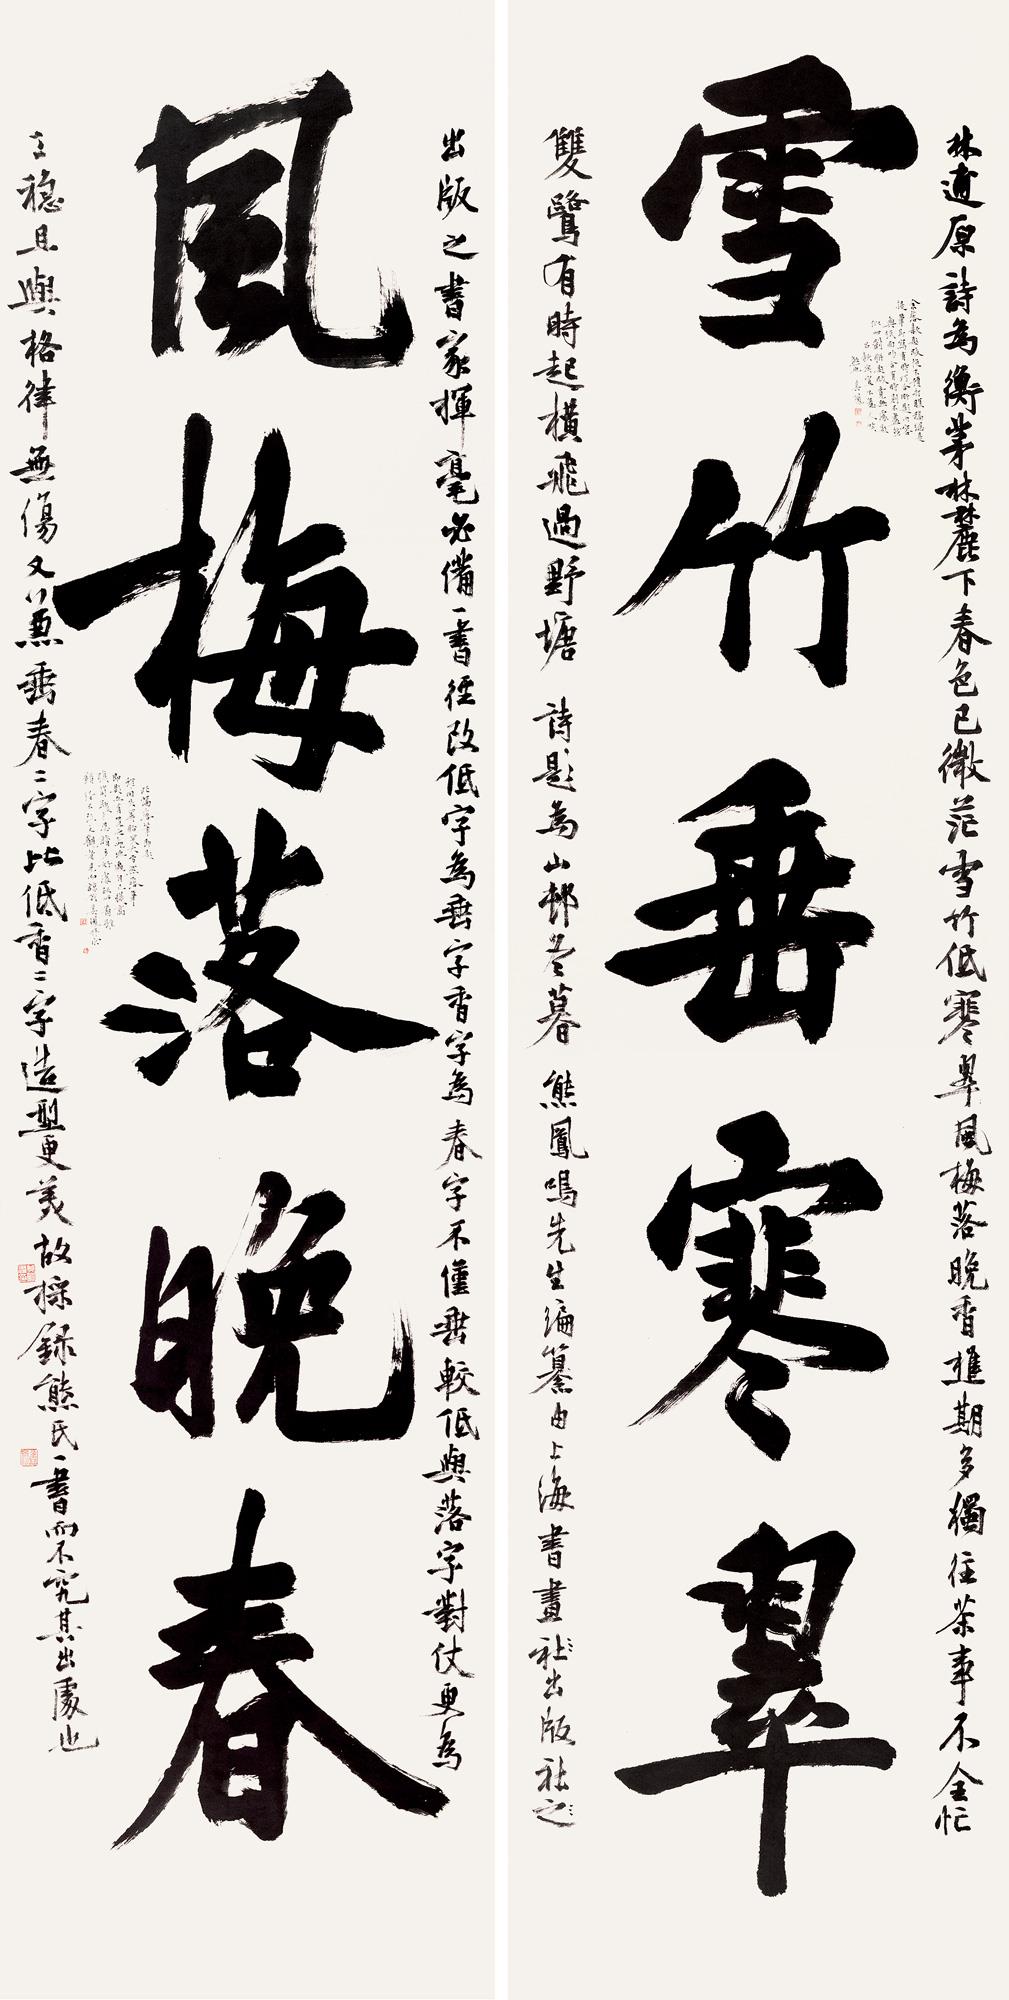 林逋原詩為衡茅林麓下春色已微茫雪竹低寒翠風梅落晚香樵期多獨往茶事不全忙
雪竹垂寒翠
雙鷺有時起橫飛過野塘 詩題為山邨冬暮 熊鳳鳴先生編纂由上海書畫社出版社之
出版之書家揮毫必備一書徑改低字為垂字香字為春字不僅垂較低與落字對仗更為
風梅落晚春
工穩且與格律無傷又以兼垂春二字比低香二字造型更美故採錄熊氏一書而不究其出處也